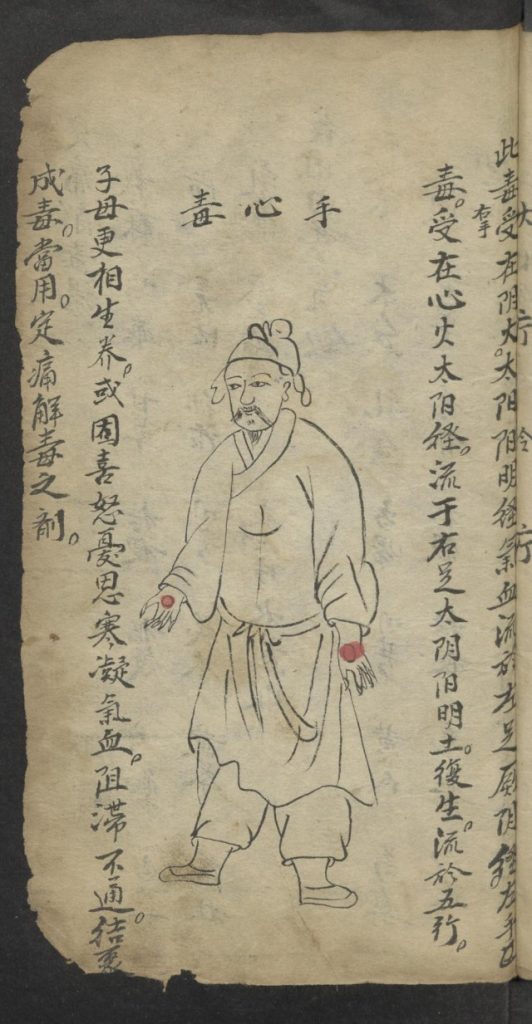 此毒受在阴火。太阳阳明经氣血流於左足厥阴经左手
右手
毒。受在心火太阳经。流于右足太阴阳明土。復生。流於五行。
手心毒
子母更相生养。或因喜怒憂思寒凝氣血。阻滞不通。结裹
成毒。當用。定痛解毒之剤。